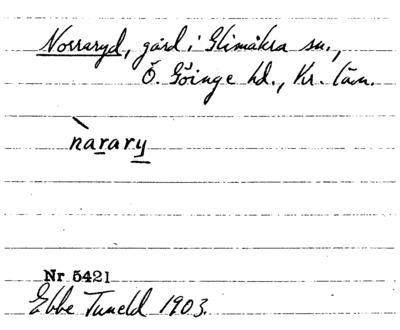 Norraryd, gård i Glimåkra sn.,
Ö. Göinge hd., Kr. län.
nàrary
Nr 5421
Ebbe Tuneld 1903.